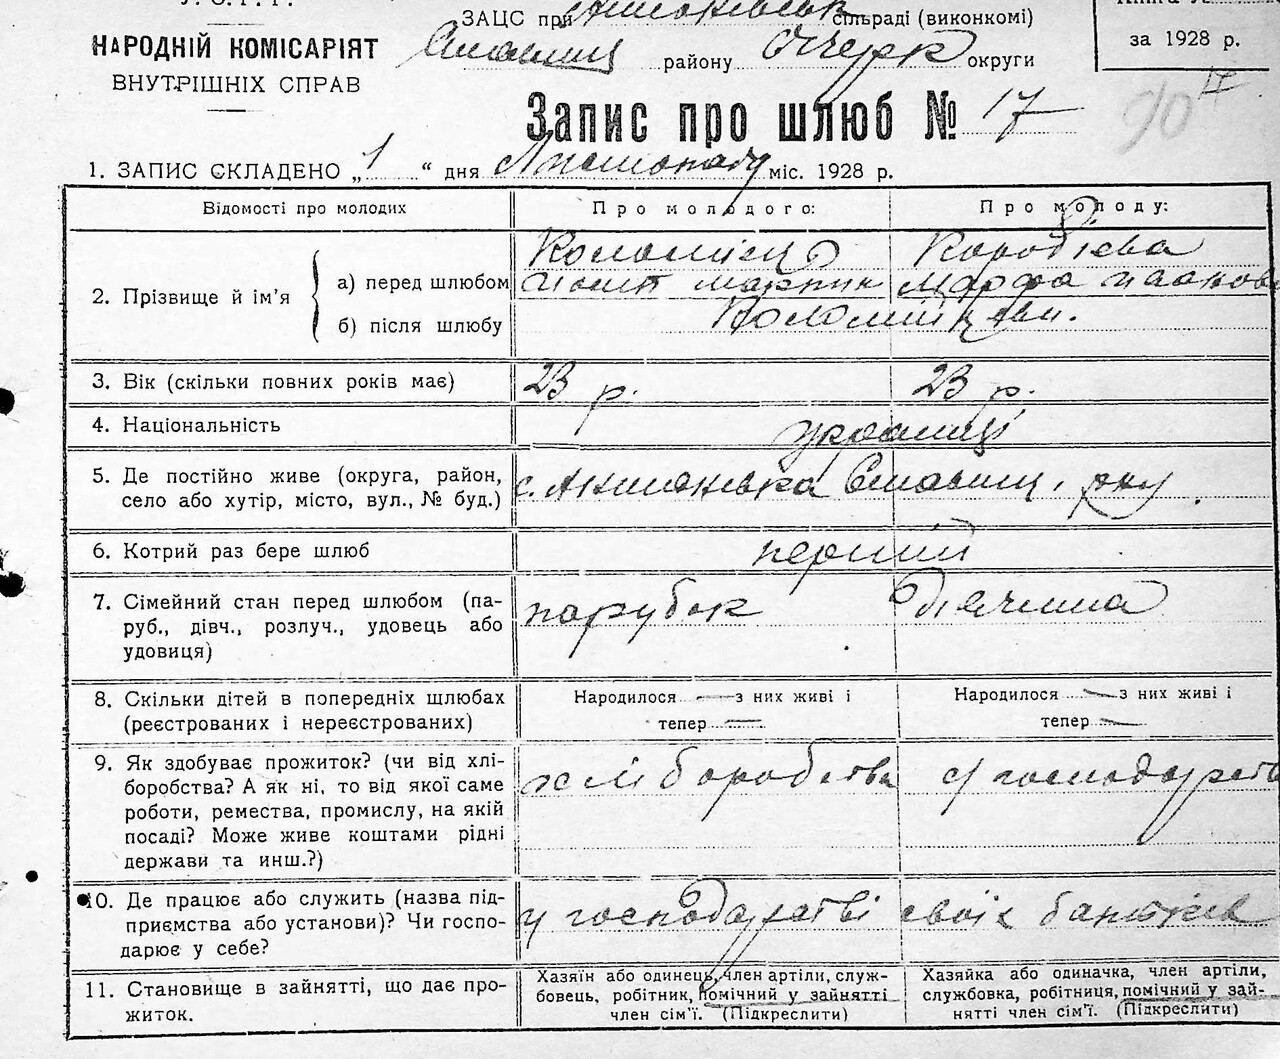 У.С.Р.Р.
НАРОДНІЙ КОМІСАРІЯТ
ВНУТРІШНІХ СПРАВ
ЗАЦС при сільраді (виконкомі)
району округи
за 1928 р.
Запис про шлюб № 17
1. ЗАПИС СКЛАДЕНО „1“ дня Листопаду міс. 1928 р.
Відомості про молодих
Про молодого:
Про молоду:
2. Прізвище й ім’я
а) перед шлюбом
Коломієц
Йосип
Марфа
б) після шлюбу
3. Вік (скільки повних років має)
23 р.
23 р.
4. Національність
українці
5. Де постійно живе (округа, район,
село або хутір, місто, вул., № буд.)
с.
6. Котрий раз бере шлюб
перший
7. Сімейний стан перед шлюбом (па-
руб., дівч., розлуч., удовець або
удовиця)
парубок
дівчина
8. Скільки дітей в попередніх шлюбах
(реєстрованих і нереєстрованих)
Народилося — з них живі і
тепер —
Народилося — з них живі і
тепер —
9. Як здобуває прожиток? (чи від хлі-
боробства? А як ні, то від якої саме
роботи, ремества, промислу, на якій
посаді? Може живе коштами рідні
держави та инш.?)
хліборобства
с/господарства
10. Де працює або служить (назва під-
приємства або установи)? Чи госпо-
дарює у себе?
у господарстві своїх батьків
11. Становище в зайнятті, що дає про-
житок.
Хазяїн або одинець, член артіли, служ-
бовець, робітник, помічний у зайнятті
член сім’ї. (Підкреслити)
Хазяйка або одиначка, член артіли,
службовка, робітниця, помічний у зай-
нятті член сім’ї. (Підкреслити)